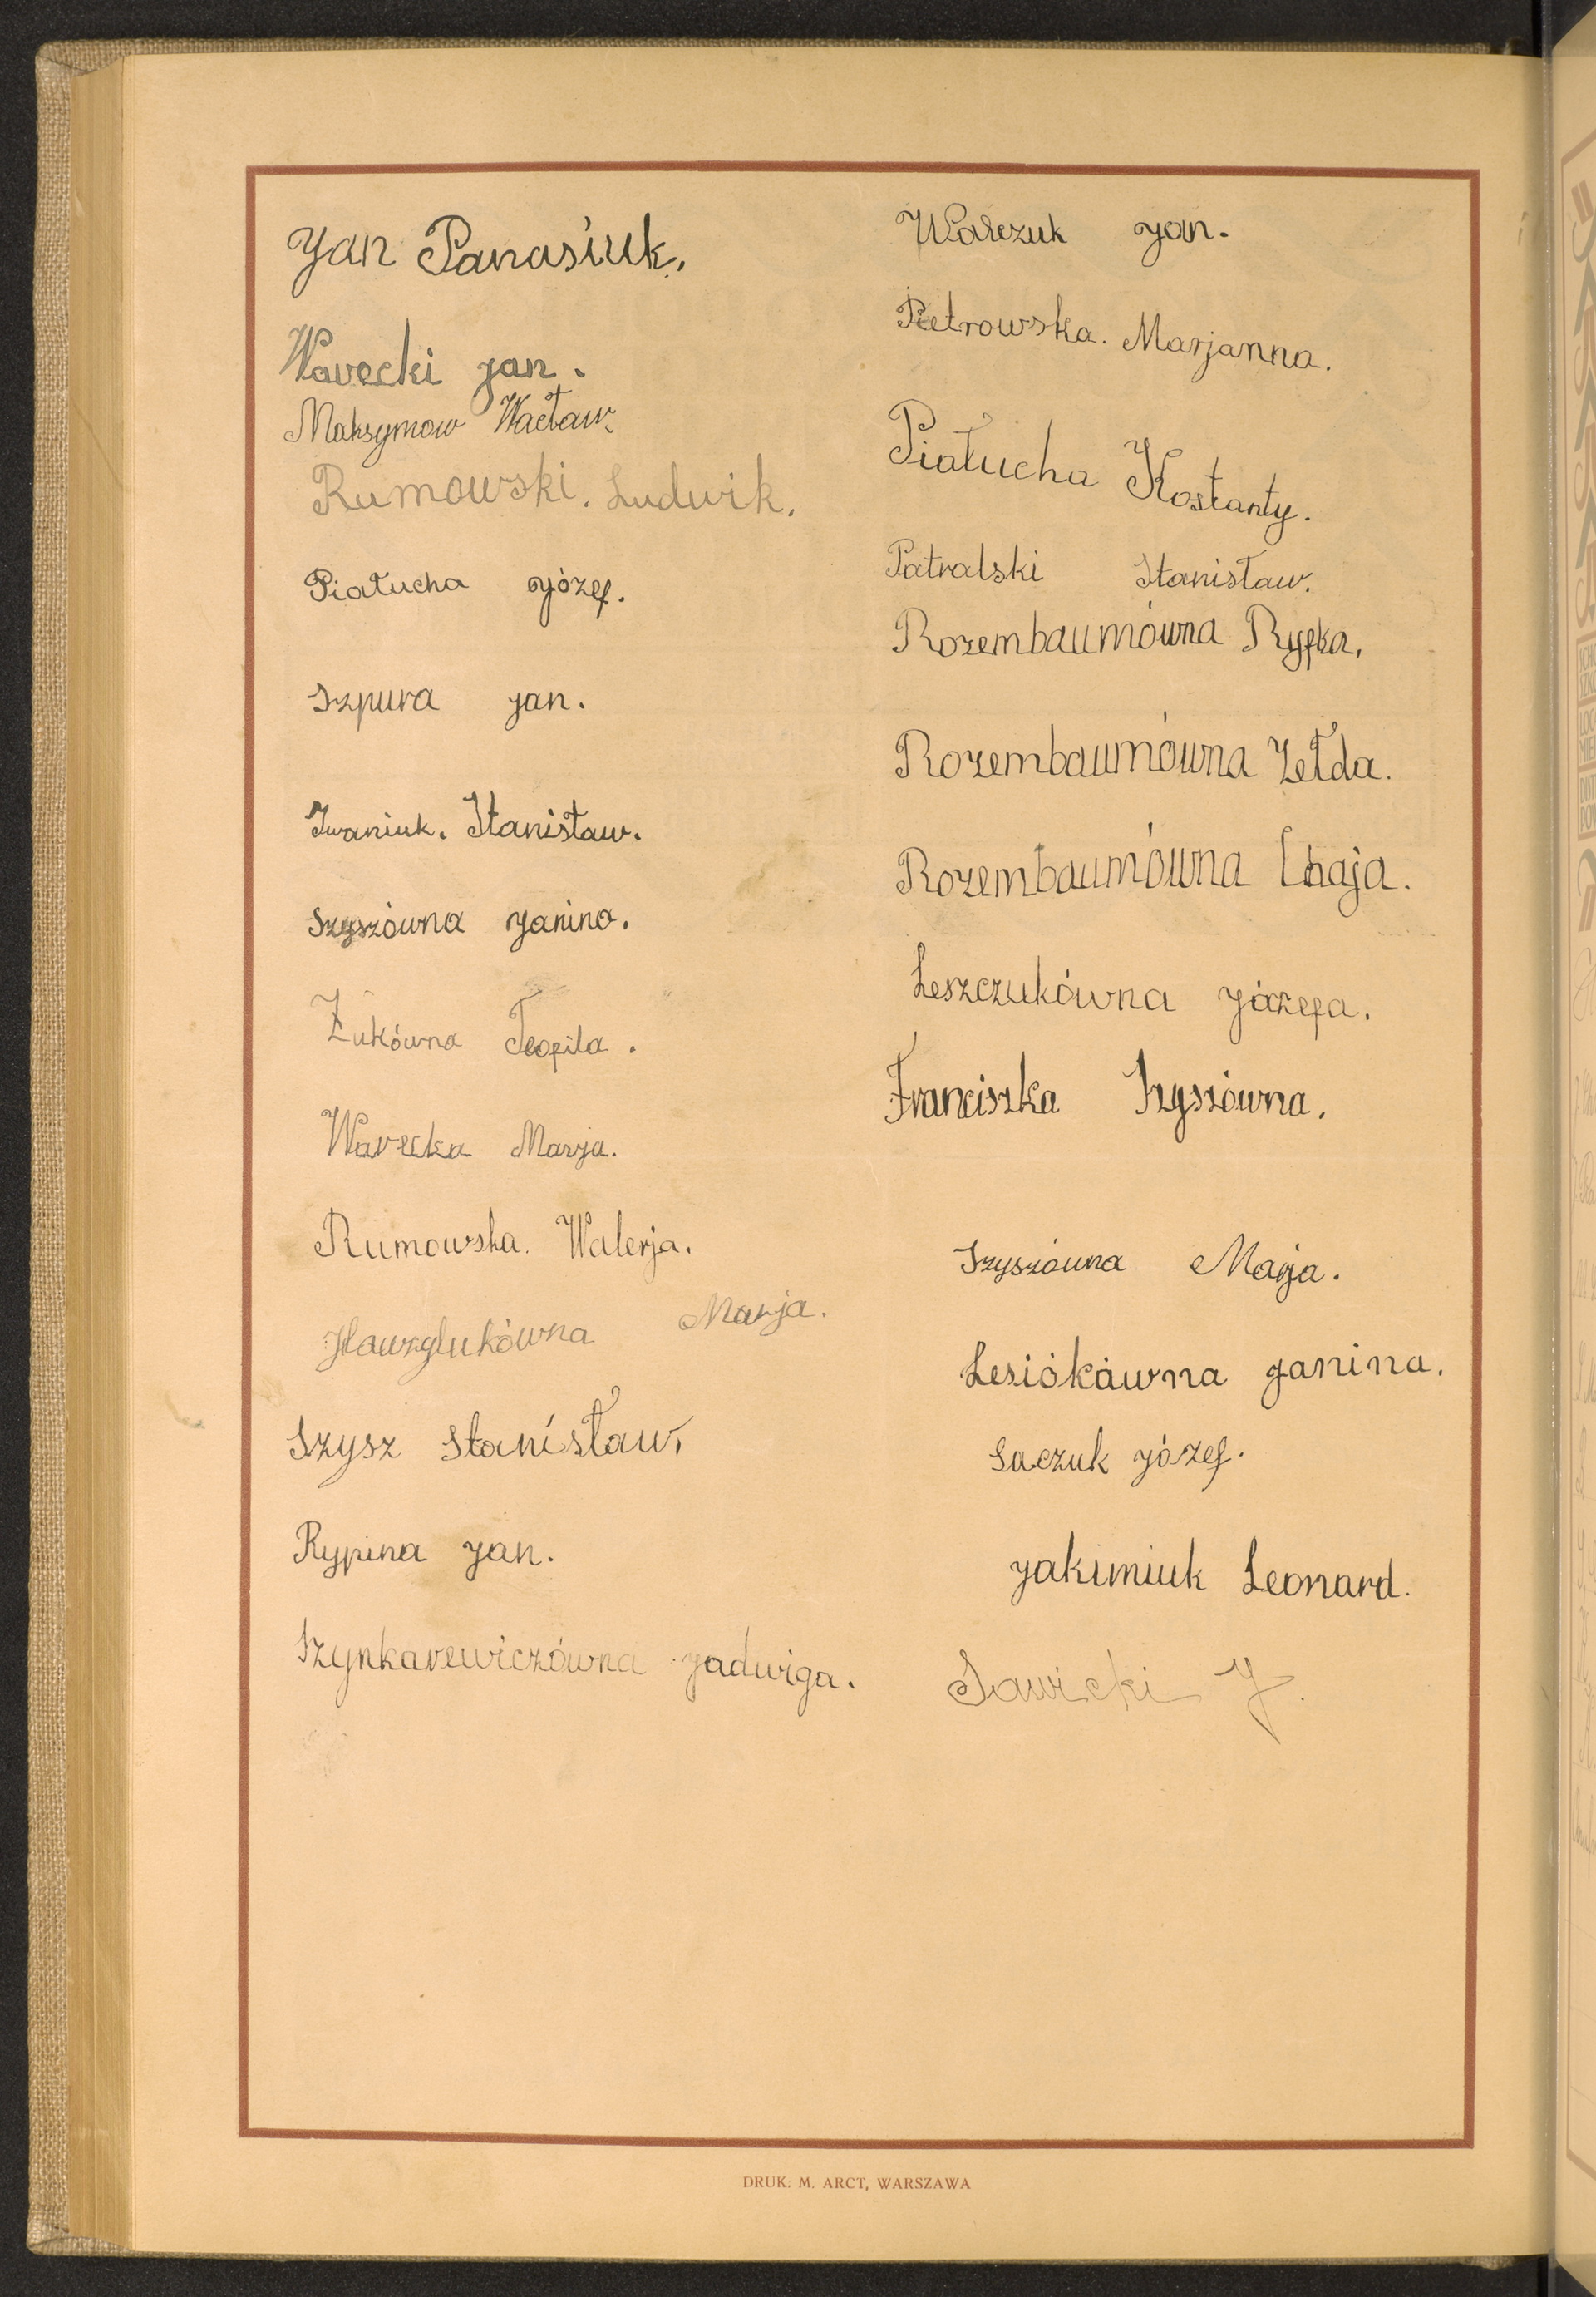 Jan Panasiuk.
Warecki Jan.
Maksymow Wacław.
Rumowski. Ludwik.
Piałucha Józef.
Szpura Jan.
Iwaniuk. Stanisław.
Szyszówna Janina.
Żukówna Teofila.
Warecka Marja.
Rumowska. Walerja.
Marja.
Szysz Stanisław.
Rypina Jan.
Szynkarewiczówna Jadwiga.
Jan.
Pietrowska. Marjanna.
Piałucha Kostanty.
Patralski Stanisław.
Rozembaumówna Ryfka.
Rozembaumówna Zełda.
Rozembaumówna Chaja.
Leszczukówna Józefa.
Franciszka Szyszówna.
Szyszówna Marja.
Lesiókówna Janina.
Saczuk Józef.
Jakimiuk Leonard.
Sawicki J.
DRUK. M. ARCT, WARSZAWA